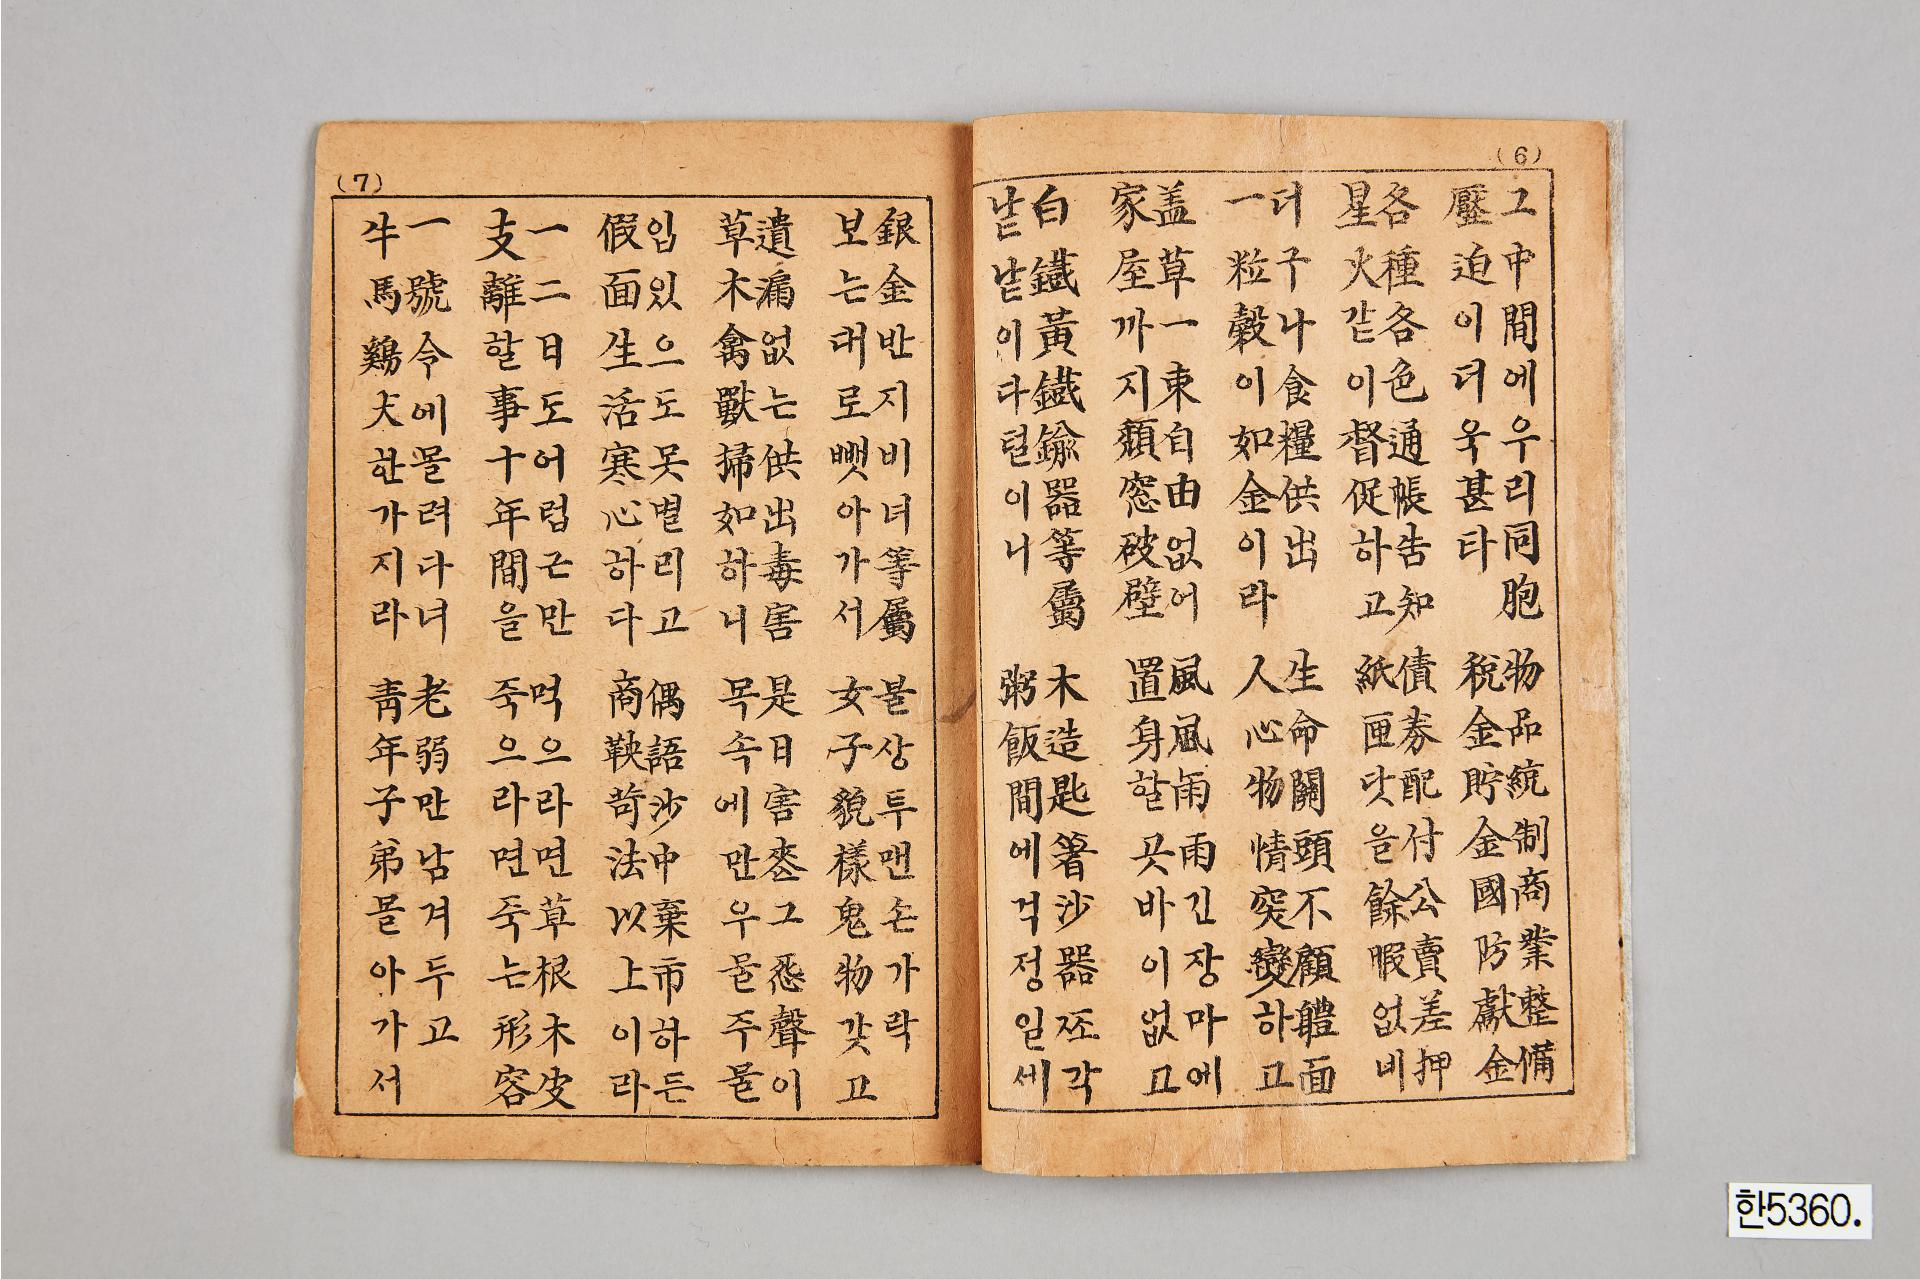 (6)
그中間에우리同胞 物品統制商業整備
壓迫이더욱甚타 稅金貯金國防獻金
各種各色通帳告知 債券配付公賣差押
星火같이督促하고 紙匣닷을餘暇없비
더구나食糧供出 生命關頭不顧體面
一粒穀이如金이라 人心物情突變하고
盖草一束自由없어 風風雨雨긴장마에
家屋까지頹窓破壁 置身할곳바이없고
白鐵黃鐵鍮器等屬 木造匙箸沙器죠각
낱낱이다털이니 粥飯間에걱정일세
(7)
銀金반지비녀等屬 불상투맨손가락
보는대로뺏아가서 女子貌樣鬼物갓고
遺漏없는供出毒害 是日害喪그怨聲이
草木禽獸掃如하니 목속에만우물주물
입있으도못벌리고 偶語沙中棄市하든
假面生活寒心하다 商鞅苛法以上이라
一二日도어럽근만 먹으라면草根木皮
支離할事十年間을 죽으라면죽는形容
一號令에몰려다녀 老弱만남겨두고
牛馬鷄犬한가지라 靑年子弟몰아가서
한5360.